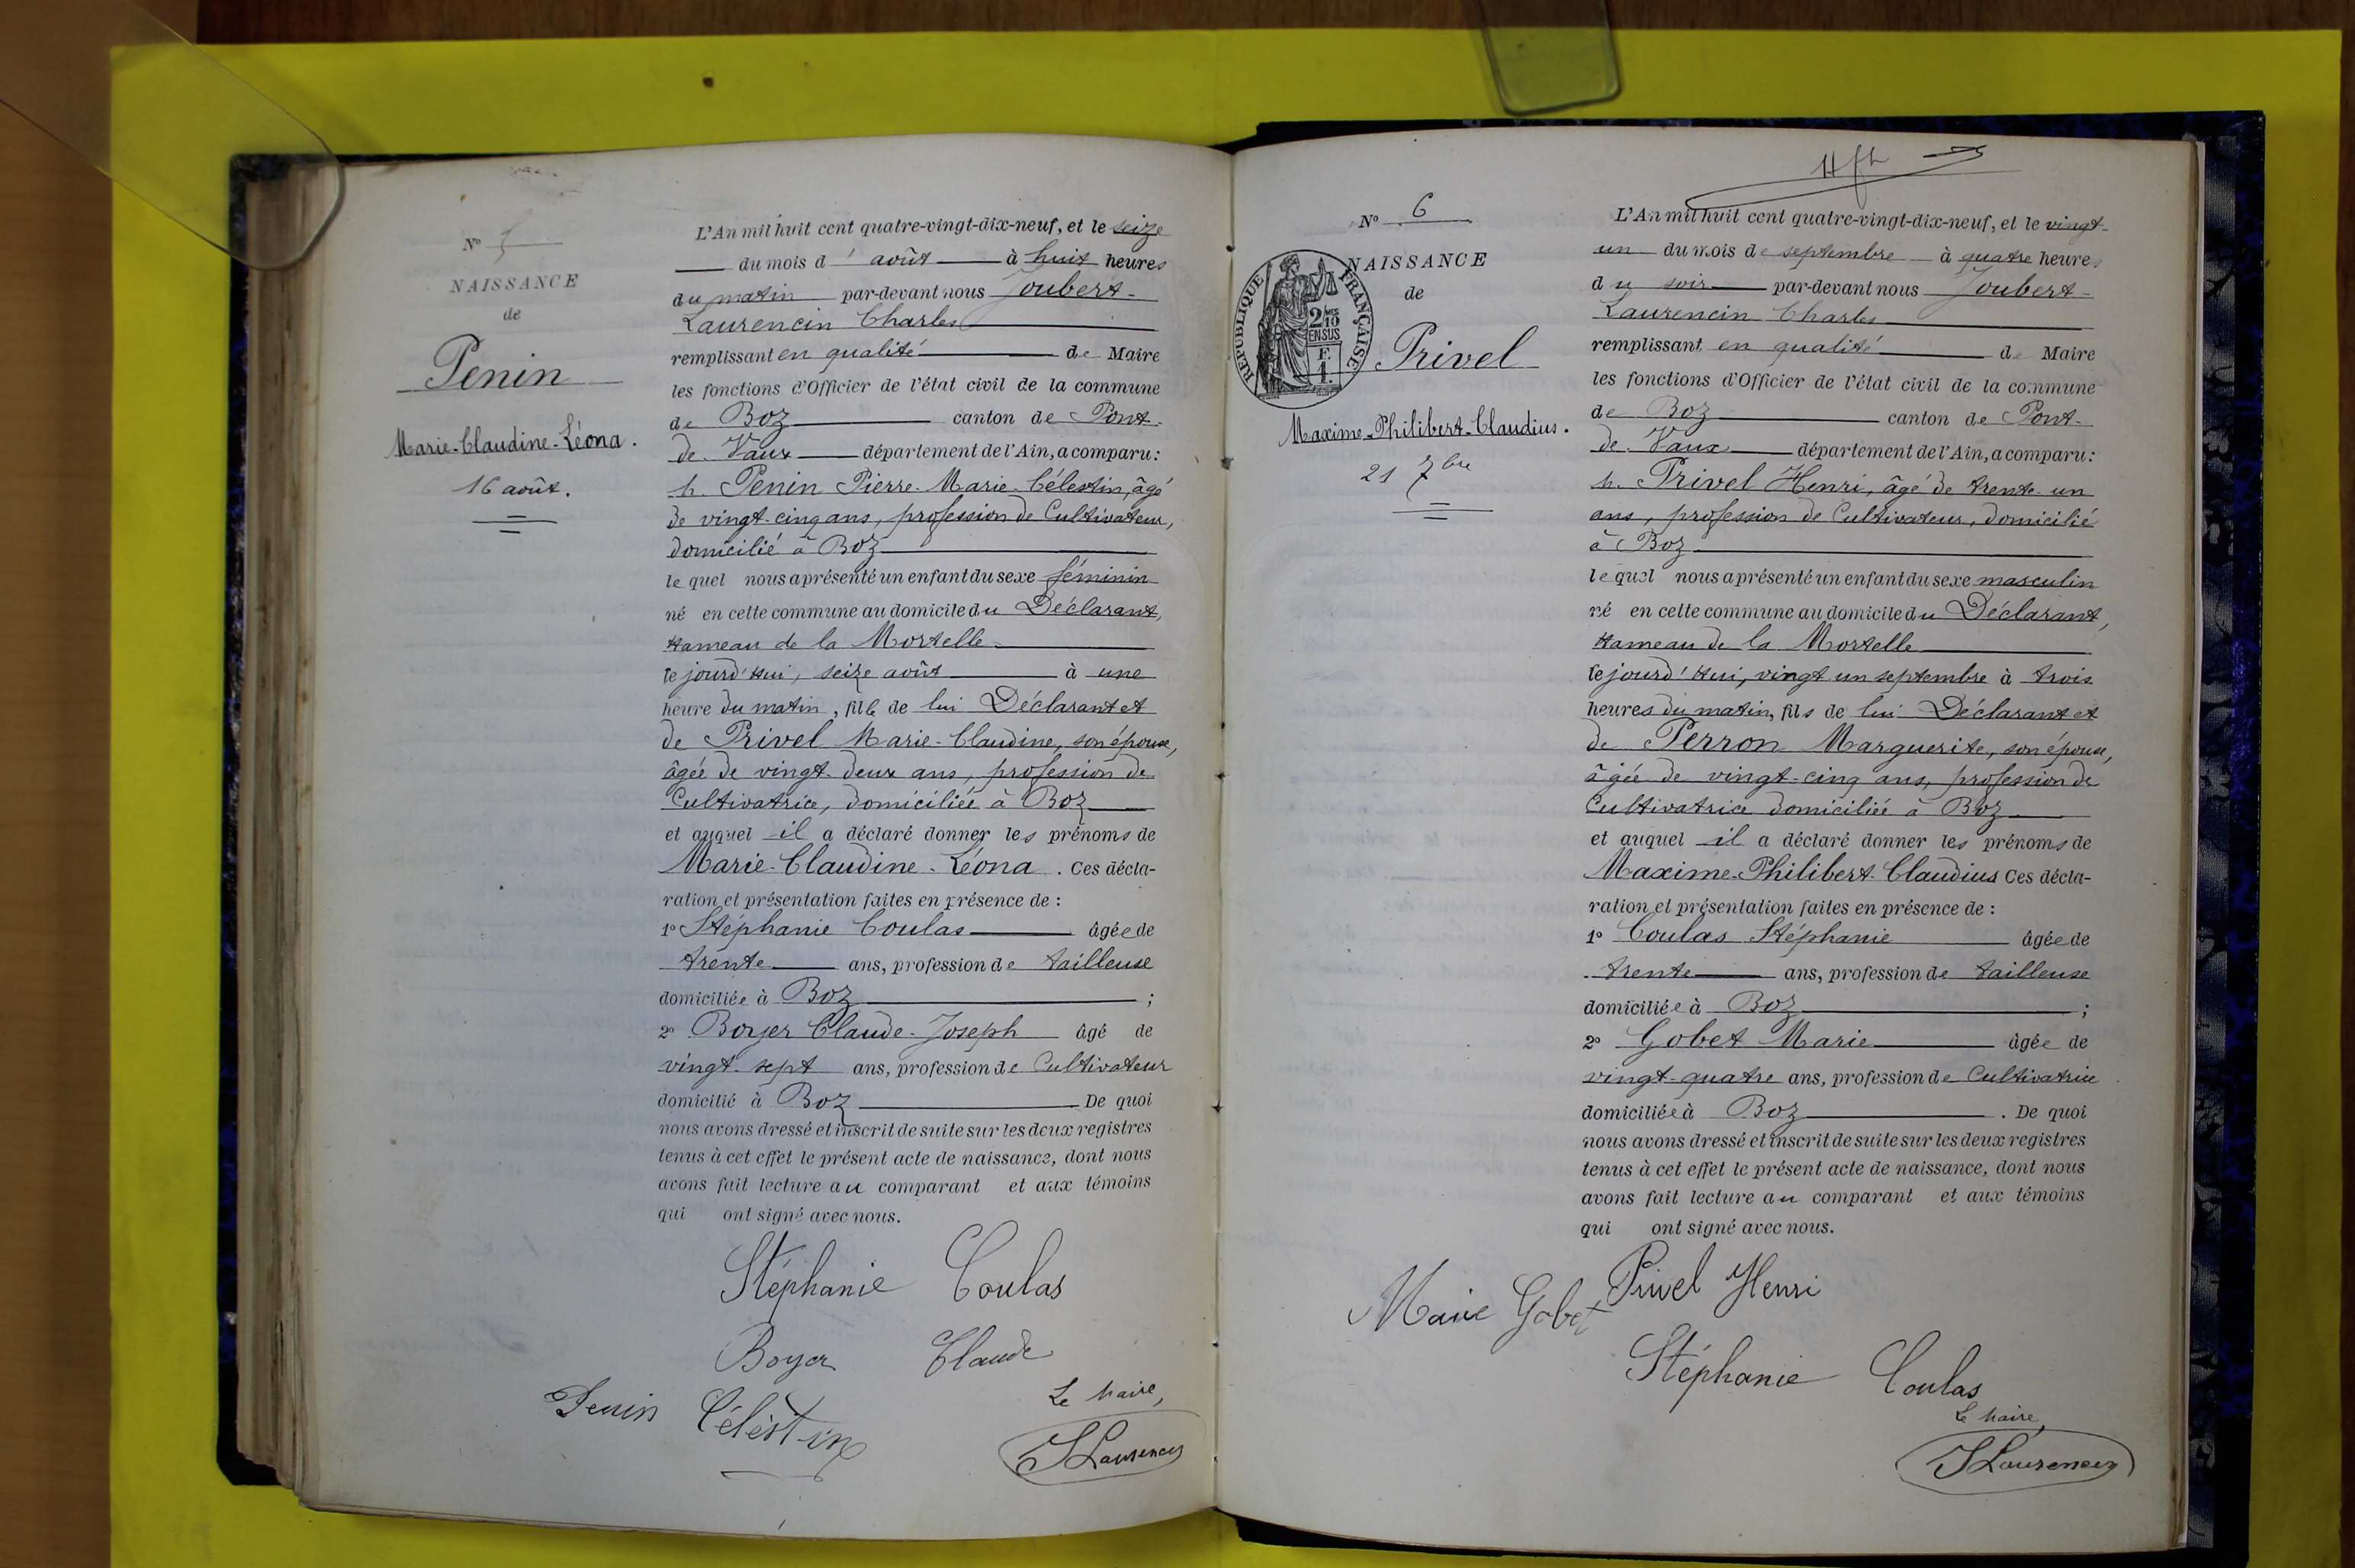 N° 5
NAISSANCE
de
Penin
Marie-Claudine-Léona.
16 août.
L'An mil huit cent quatre-vingt-dix-neuf, et le seize
du mois d'août à huit heures
du matin par-devant nous Joubert-
Laurencin Charles
remplissant en qualité de Maire
les fonctions d'Officier de l'état civil de la commune
de Boz canton de Pont-
de-Vaux département de l'Ain, a comparu:
M. Penin Pierre-Marie-Célestin, âgé
de vingt-cinq ans, profession de Cultivateur,
domicilié à Boz
lequel nous a présenté un enfant du sexe féminin
né en cette commune au domicile du Déclarant,
hameau de la Mortelle
ce jourd'hui, seize août à une
heure du matin, fille de lui Déclarant et
de Privel Marie-Claudine, son épouse,
âgée de vingt-deux ans, profession de
Cultivatrice, domiciliée à Boz
et auquel il a déclaré donner les prénoms de
Marie-Claudine-Léona. Ces décla-
ration et présentation faites en présence de :
1° Stéphanie Coulas âgée de
trente ans, profession de tailleuse
domiciliée à Boz ;
2° Boyer Claude-Joseph âgé de
vingt-sept ans, profession de Cultivateur
domicilié à Boz De quoi
nous avons dressé et inscrit de suite sur les deux registres
tenus à cet effet le présent acte de naissance, dont nous
avons fait lecture au comparant et aux témoins
qui ont signé avec nous.
Stéphanie Coulas
Boyer Claude
Penin Célestin
Le Maire,
J Laurencin
N° 6
NAISSANCE
de
RÉPUBLIQUE FRANÇAISE
2/10 EN SUS
Privel
Maxime-Philibert-Claudius.
21 7bre
L'An mil huit cent quatre-vingt-dix-neuf, et le vingt-
un du mois de septembre à quatre heures
du soir par-devant nous Joubert-
Laurencin Charles
remplissant en qualité de Maire
les fonctions d'Officier de l'état civil de la commune
de Boz canton de Pont-
de-Vaux département de l'Ain, a comparu:
M. Privel Henri, âgé de trente-un
ans, profession de Cultivateur, domicilié
à Boz
lequel nous a présenté un enfant du sexe masculin
né en cette commune au domicile du Déclarant,
hameau de la Mortelle
ce jourd'hui, vingt un septembre à trois
heures du matin, fils de lui Déclarant et
de Perron Marguerite, son épouse,
âgée de vingt-cinq ans, profession de
Cultivatrice domiciliée à Boz
et auquel il a déclaré donner les prénoms de
Maxime-Philibert-Claudius Ces décla-
ration et présentation faites en présence de :
1° Coulas Stéphanie âgée de
trente ans, profession de tailleuse
domiciliée à Boz ;
2° Gobet Marie âgée de
vingt-quatre ans, profession de Cultivatrice
domiciliée à Boz. De quoi
nous avons dressé et inscrit de suite sur les deux registres
tenus à cet effet le présent acte de naissance, dont nous
avons fait lecture au comparant et aux témoins
qui ont signé avec nous.
Marie Gobet Privel Henri
Stéphanie Coulas
Le Maire,
J Laurencin